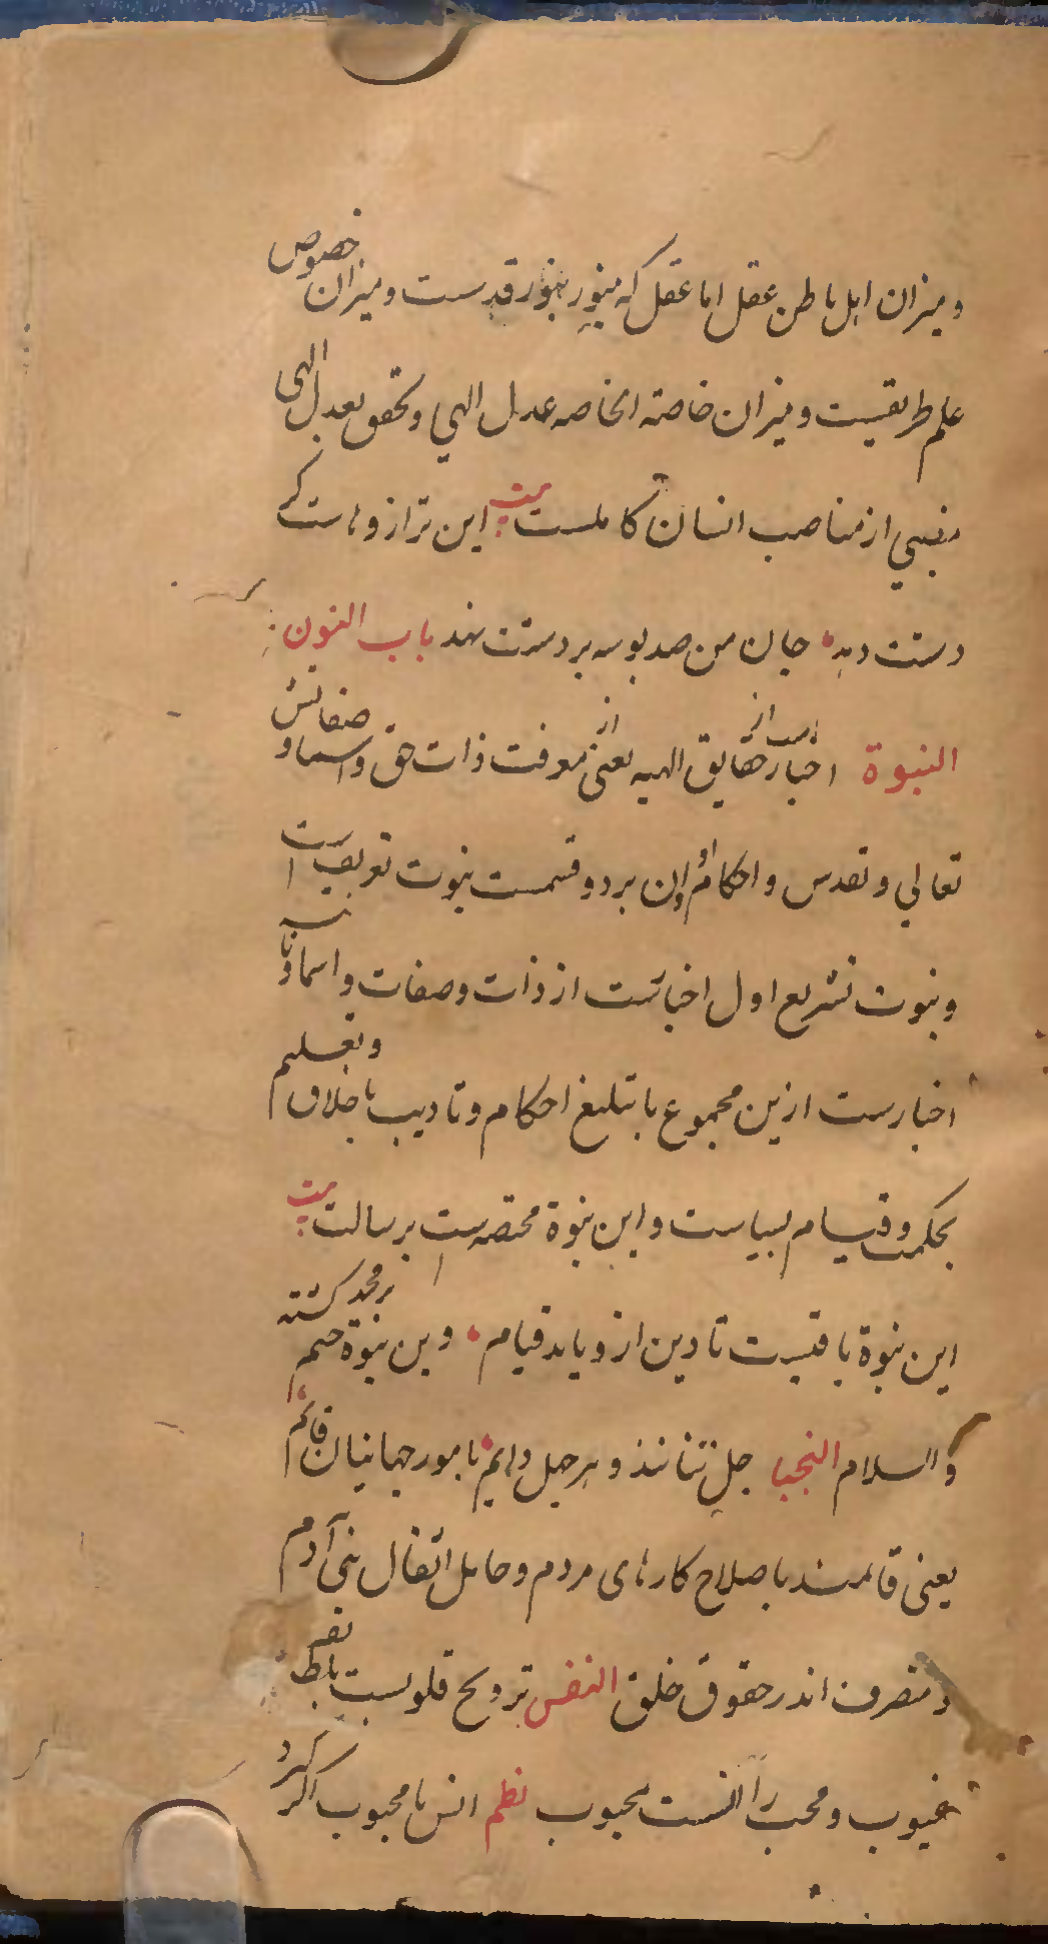 ومیزان اهل باطن عقل اما عقل که منور بنور قدست ومیزان خصوص
علم طریقیست ومیزان خاصه الخاصه عدل الهی وتحقق بعدل الهی
منصبی از مناصب انسان کاملست بیت این ترازو راست کر
دستت دهد جان من صد بوسه بر دستت نهد باب النون
النبوة اخبارست از حقایق الهیه یعنی از معرفت ذات حق واسما و صفاتش
تعالی وتقدس واحکام او واین بر دو قسمست نبوت تعریف است
ونبوت تشریع اول اخبارست از ذات وصفات واسما
اخبارست ازین مجموع با تبلیغ احکام وتادیب باخلاق وتعلیم
بحکمت وقیام بسیاست واین نبوة مختصه است برسالت بیت
این نبوة باقیست تا دین ازو یابد قیام وین نبوة ختم بر محمد کشته
والسلام النجبا چل تنانند وهر چل دایم بامور جهانیان قائم
یعنی قائمند باصلاح کارهای مردم وحامل اثقال بنی آدم
ومتصرف اندر حقوق خلق النفس ترویح قلوبست بلطایف
غیوب ومحب را انست بمحبوب نظم انس با محبوب اکر کیرد